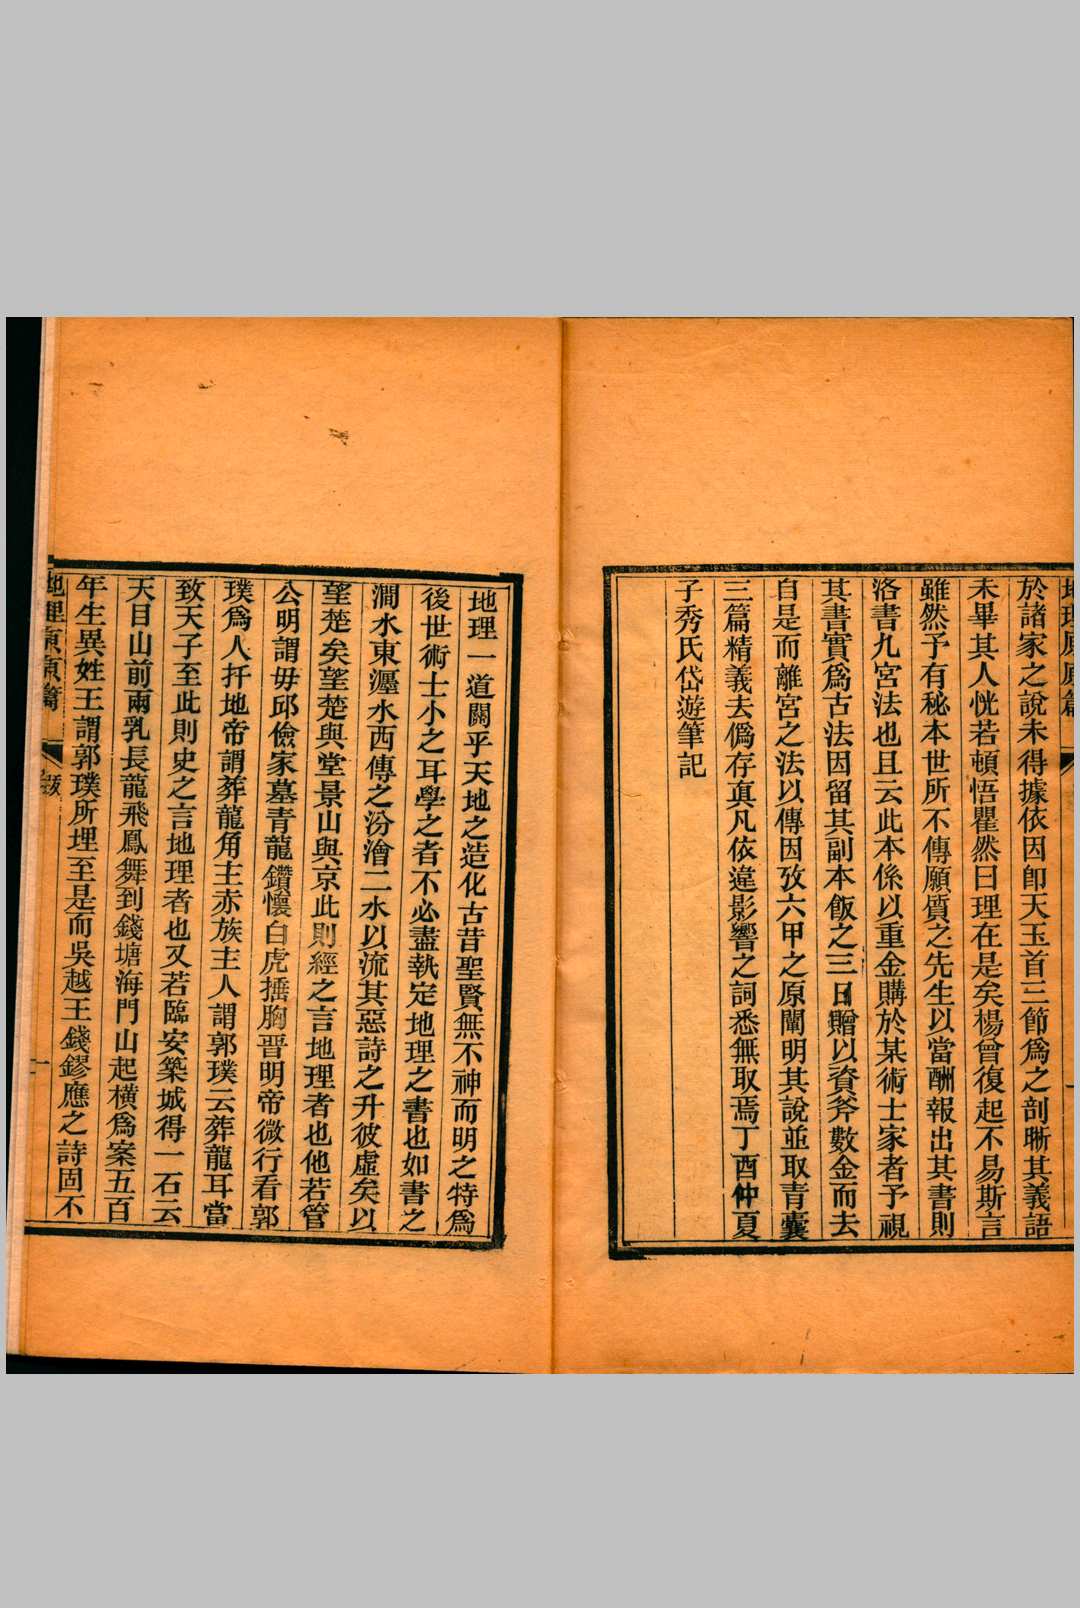 地理原原篇
於諸家之說未得據依因卽天玉首三節爲之剖晰其義語
未畢其人恍若頓悟瞿然曰理在是矣楊曾復起不易斯言
雖然予有秘本世所不傳願質之先生以當酬報出其書則
洛書九宮法也且云此本係以重金購於某術士家者予視
其書實爲古法因留其副本飯之三日贈以資斧數金而去
自是而離宮之法以傳因攷六甲之原闡明其說並取青囊
三篇精義去僞存眞凡依違影響之詞悉無取焉丁酉仲夏
子秀氏岱遊筆記
地理一道關乎天地之造化古昔聖賢無不神而明之特爲
後世術士小之耳學之者不必盡執定地理之書也如書之
澗水東瀍水西傳之汾澮二水以流其惡詩之升彼虛矣以
望楚矣望楚與堂景山與京此則經之言地理者也他若管
公明謂毋邱儉家墓青龍鑽懷白虎搥胸晋明帝微行看郭
璞爲人扦地帝謂葬龍角主赤族主人謂郭璞云葬龍耳當
致天子至此則史之言地理者也又若臨安築城得一石云
天目山前兩乳長龍飛鳳舞到錢塘海門山起橫爲案五百
年生異姓王謂郭璞所埋至是而吳越王錢鏐應之詩固不
地理原原篇
跋
一